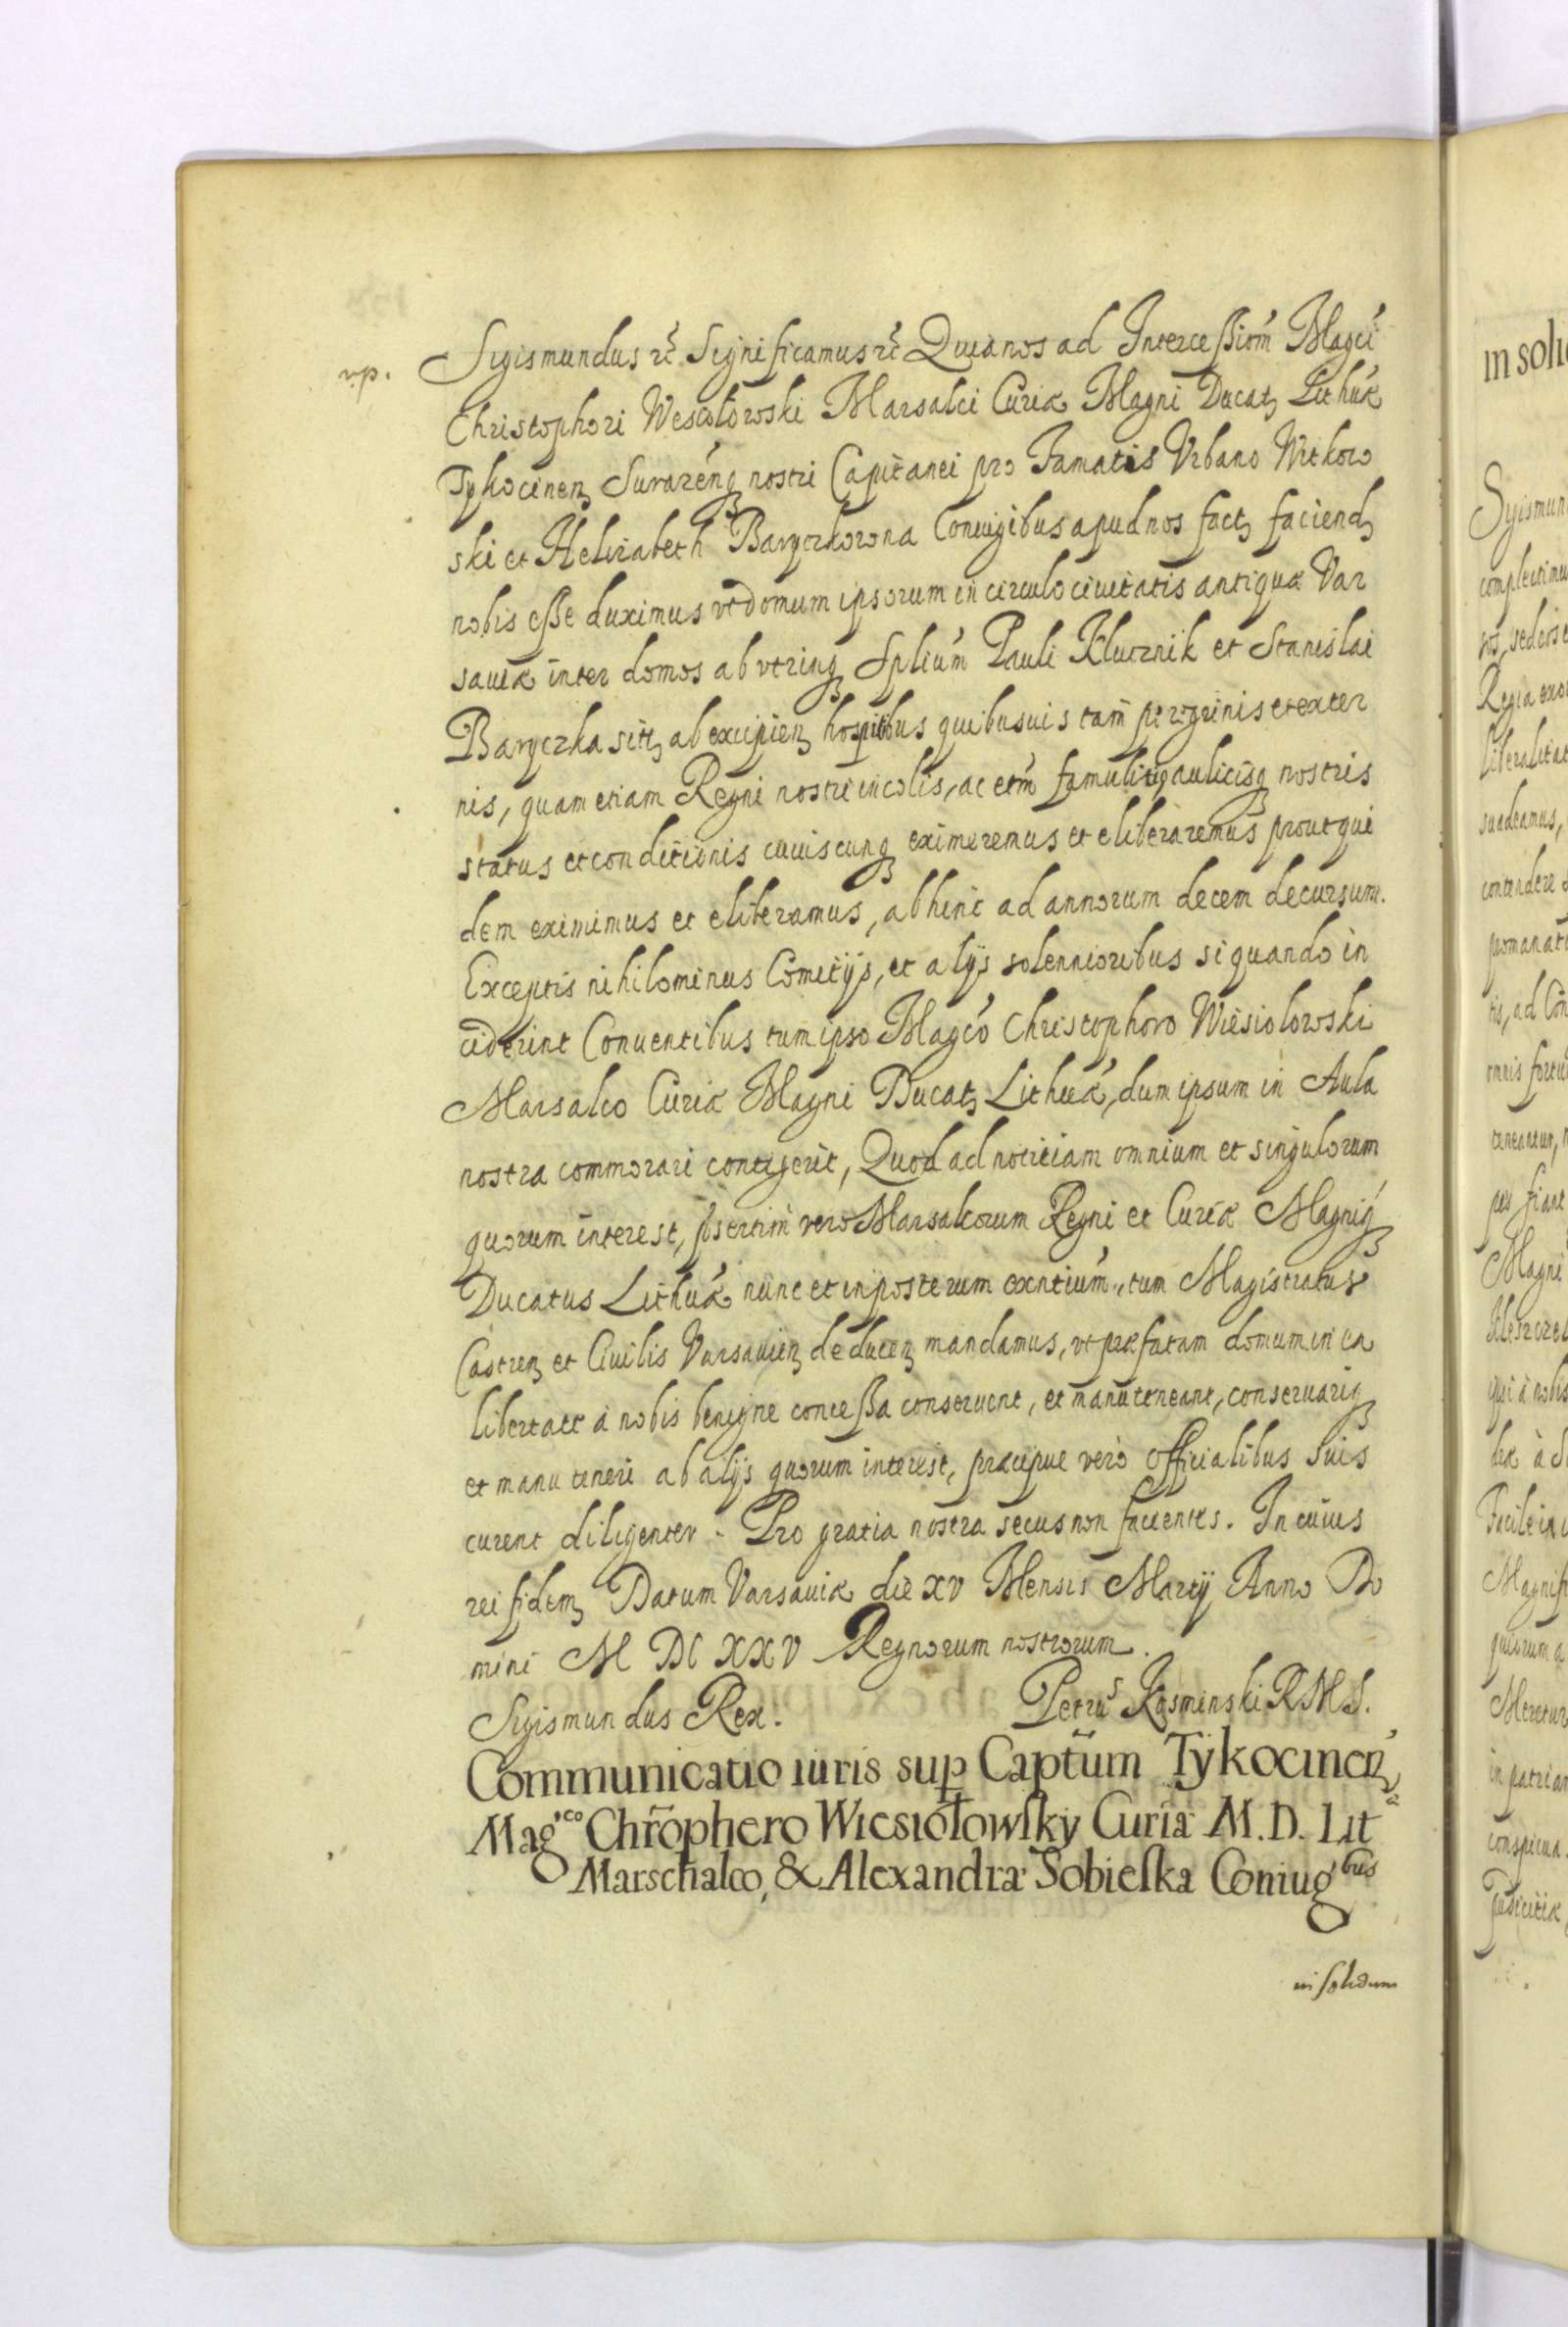 vp.
Sigismundus etc̃ Significamus etc̃ Quia nos ad Intercessiom̃ Magcí
Christophori Wesiolowski Marsalci Curiæ Magni Ducatꝫ Lithuæ
Tykocinenꝫ Surazénqꝫ nostri Capitanei pro Famatis Vrbano Witkow
ski et Helizabeth Baryczkowna Coniugibus apud nos factꝫ faciendꝫ
nobis esse duximus vt domum ipsorum in circulo ciuitatis antiquæ Var
sauiæ inter domos ab vtrinqꝫ Spliúm Pauli Klucznik et Stanislai
Baryczka sitꝫ ab excipienꝫ hospitibus quibusuis tam̃ peregrinis et exter
nis, quam etiam Regni nostri incolis, ac etm̃ famulitijs aulicisqꝫ nostris
status et conditionis cuiuscunqꝫ eximeremus et eliberaremus prout qui
dem eximimus et eliberamus, abhinc ad annorum decem decursum.
Exceptis nihilominus Comitijs, et alijs solennioribus si quando in
ciderint Conuentibus tum ipso Magcó Christophoro Wiesiolowski
Marsalco Curiæ Magni Ducatꝫ Lithuæ, dum ipsum in Aula
nostra commorari contigerit, Quod ad notitiam omnium et singulorum
quorum interest, psertim̃ vero Marsalcorum Regni et Curiæ Magniqꝫ
Ducatus Lithuæ nunc et inposterum exntiúm, tum Magistratus
Castrenꝫ et Ciuilis Varsauienꝫ deducenꝫ mandamus, vt præfatam domum in ea
libertate à nobis benigne concessa conseruent, et manuteneant, conseruariqꝫ
et manu teneri ab alijs quorum interest, præcipue verò Officialibus suis
curent diligenter. Pro gratia nostra secus non facientes. In cuius
rei fidemꝫ Datum Varsauiæ die XV Mensis Martij Anno Do
mini M DC XXV Regnorum nostrorum.
Sigismundus Rex. Petrus Kosminski R M S.
Communicatio iuris sup Captũm Tykocinenꝫ
Mag.co Chrõphero Wiesiołowsky Curiæ M. D. Lit
Marschalco, & Alexandræ Sobieska Coniugbus
in solidum
in soli
Sigismun